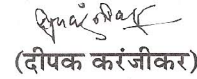 (दीपक करंजीकर)